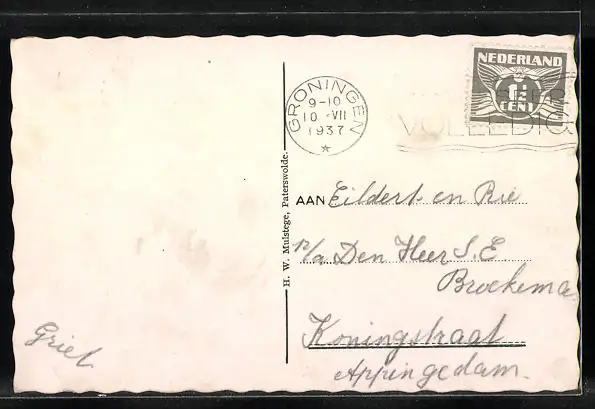 NEDERLAND
1½
CENT
GRONINGEN
9-10
10 -VII
1937
VOLLEDIG
H. W. Mulstege, Paterswolde.
AAN Eildert en Rie
p/a Den Heer S. E.
Broekema
Koningstraat
Appingedam.
Griet